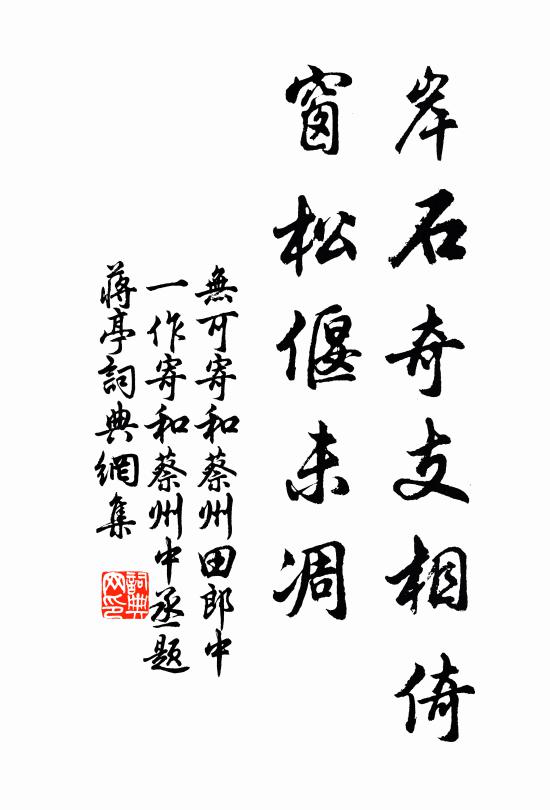 岸石奇支相倚
窗松偃未凋
無可寄和蔡州田郎中
一作寄和蔡州中丞題
蔣亭詞典網集
詞典网印